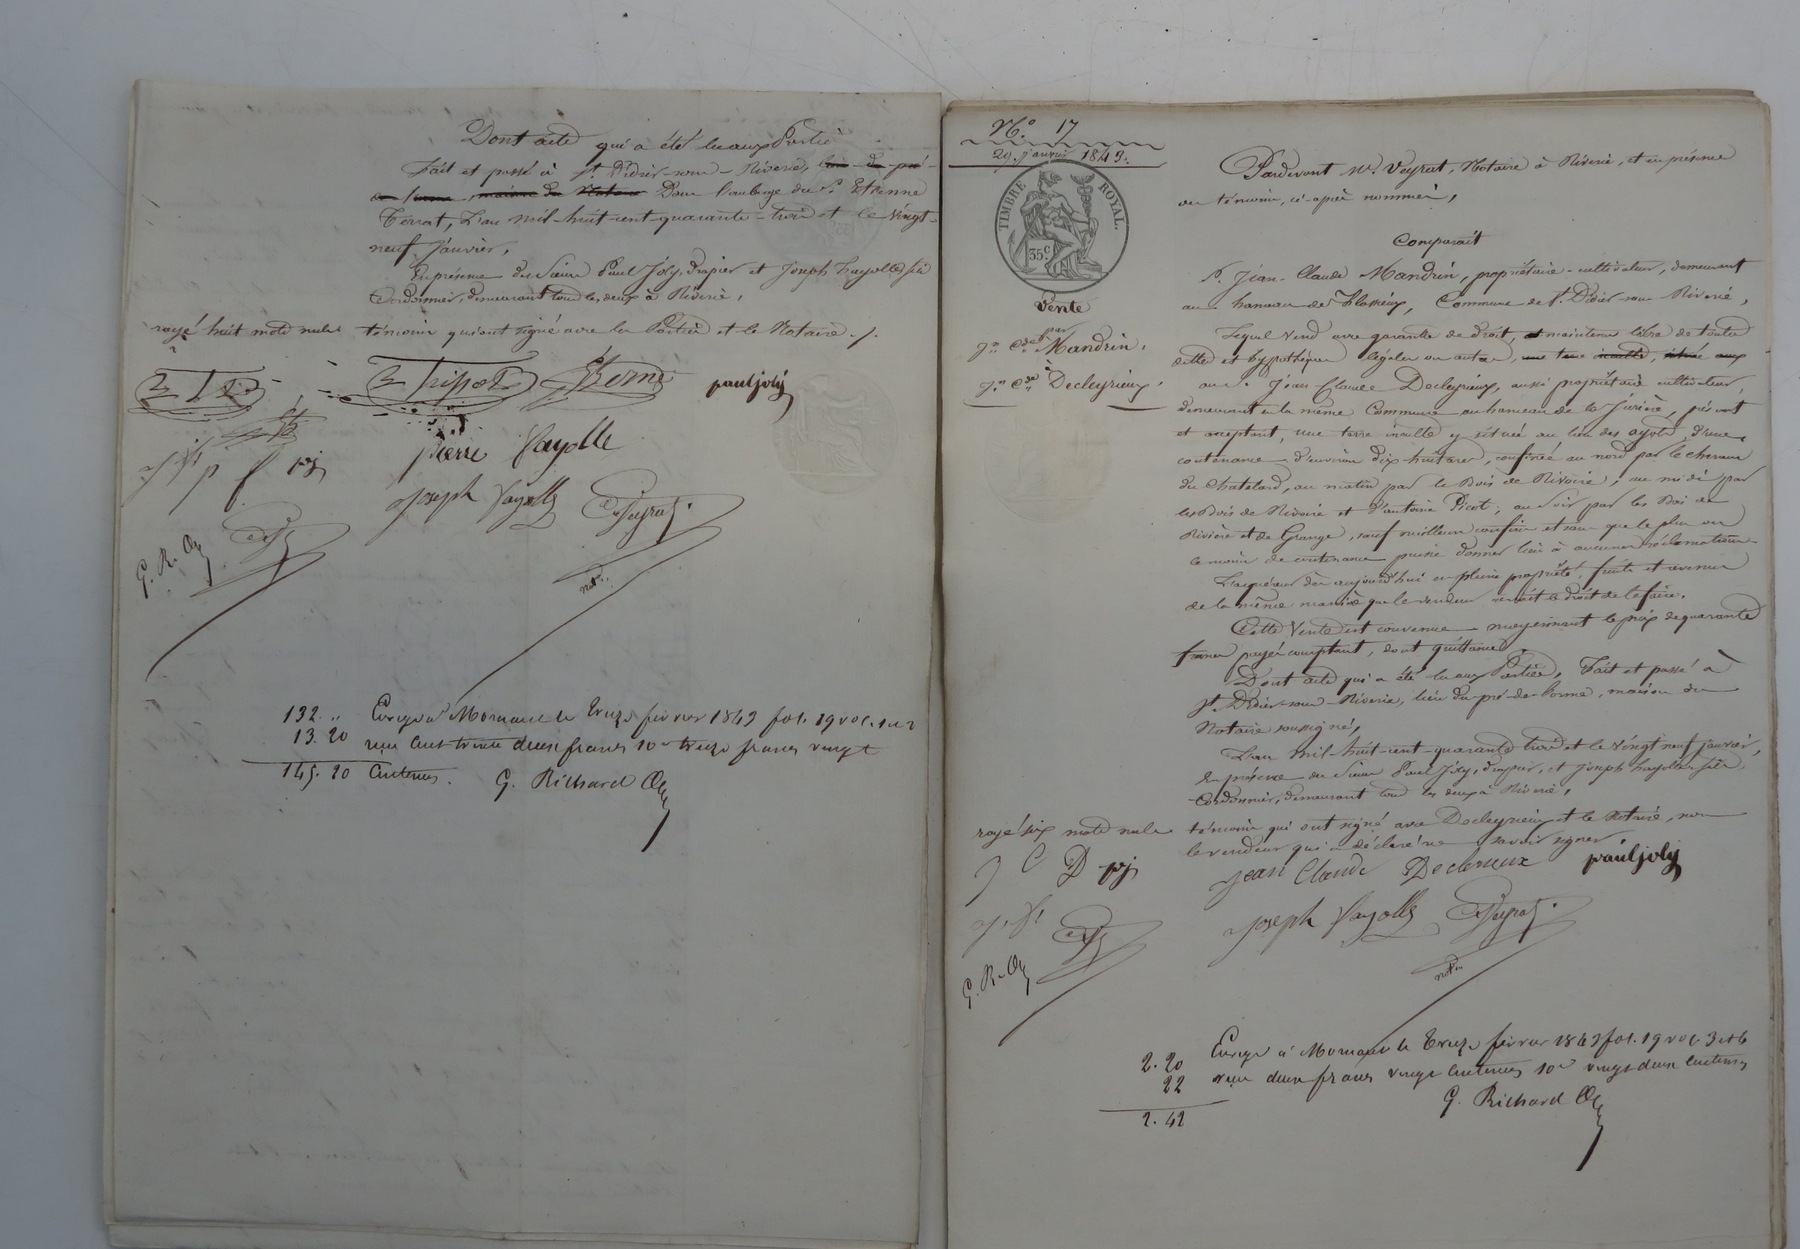 Dont acte qui a été lu aux Parties
Fait et passé à St. Didier-sous-Riverie, lieu du pré-
de lorme, maison du Notaire Dans l'auberge du Sr. Etienne
Terrat, L'an mil-huit-cent-quarante-trois et le vingt-
neuf Janvier,
En présence des Sieurs Paul Joly, drapier et Joseph Fayolle fils
Cordonnier, demeurant tous les deux à Riverie,
rayé huit mots nuls témoins qui ont signé avec les Parties et le Notaire ./.
pauljolij
pierre fayolle
p f pj
Joseph fayolle
G. R.
not.re
132. „ Enregé à Mornant le Treize février 1843 fol. 19 vo c. 1 et 2
13. 20 reçu Cent trente deux francs 10e treize francs vingt
145. 20 Centimes. G. Richard
No. 17
29. janvier 1843.
TIMBRE ROYAL.
35c.
Vente
par
Jn. Cde. Mandrin,
à
Jn. Cde. Decleyrieux,
Pardevant Me. Veyrat, Notaire à Riverie, et en présence
des témoins, ci-après nommés,
Comparait
Sr. Jean-Claude Mandrin, propriétaire-cultivateur, demeurant
au hameau de Commune de St. Didier-sous Riverie,
Lequel vend avec garantie de droit, et maintenue libre de toutes
dettes et hypothèques légales ou autres, une terre inculte, située aux
au Sr. Jean-Claude Decleyrieux, aussi propriétaire cultivateur,
demeurant en la même Commune au hameau de la présent
et acceptant, une terre inculte y située au lieu des d'une
contenance d'environ dix-huit ares, confinée au nord par le chemin
du Chatelard, au matin par le Bois de Rivoire, au midi par
les Bois de Rivoire et d'antoine Picot, au soir par les Bois de
Rivière et de Grange, sauf meilleurs confins et sans que le plus ou
le moins de contenance puisse donner lieu à aucune réclamation.
L'acquéreur dès aujourd'hui en pleine propriété, fruits et revenus
de la même manière que le vendeur avait le droit de le faire.
Cette Vente est convenue moyennant le prix de quarante
francs payés comptant, dont quittance.
Dont acte qui a été lu aux Parties, Fait et passé à
St. Didier-sous-Riverie, lieu du pré-de-lorme, maison du
Notaire soussigné,
L'an mil-huit-cent-quarante trois et le vingt neuf janvier,
En présence des Sieurs Paul Joly, drapier, et Joseph Fayolle fils
Cordonnier, demeurant tous les deux à Riverie,
rayé six mots nuls témoins qui ont signé avec Decleyrieux et le Notaire, non
le vendeur qui a déclaré ne savoir signer
J C D pj Jean Claude Declerieux pauljolij
Joseph fayolle
G. R.
not.re
2. 20 Enregé à Mornant le Treize février 1843 fol. 19 vo c. 3 et 4
22 reçu deux francs vingt Centimes 10e vingt deux Centimes
2. 42 G. Richard